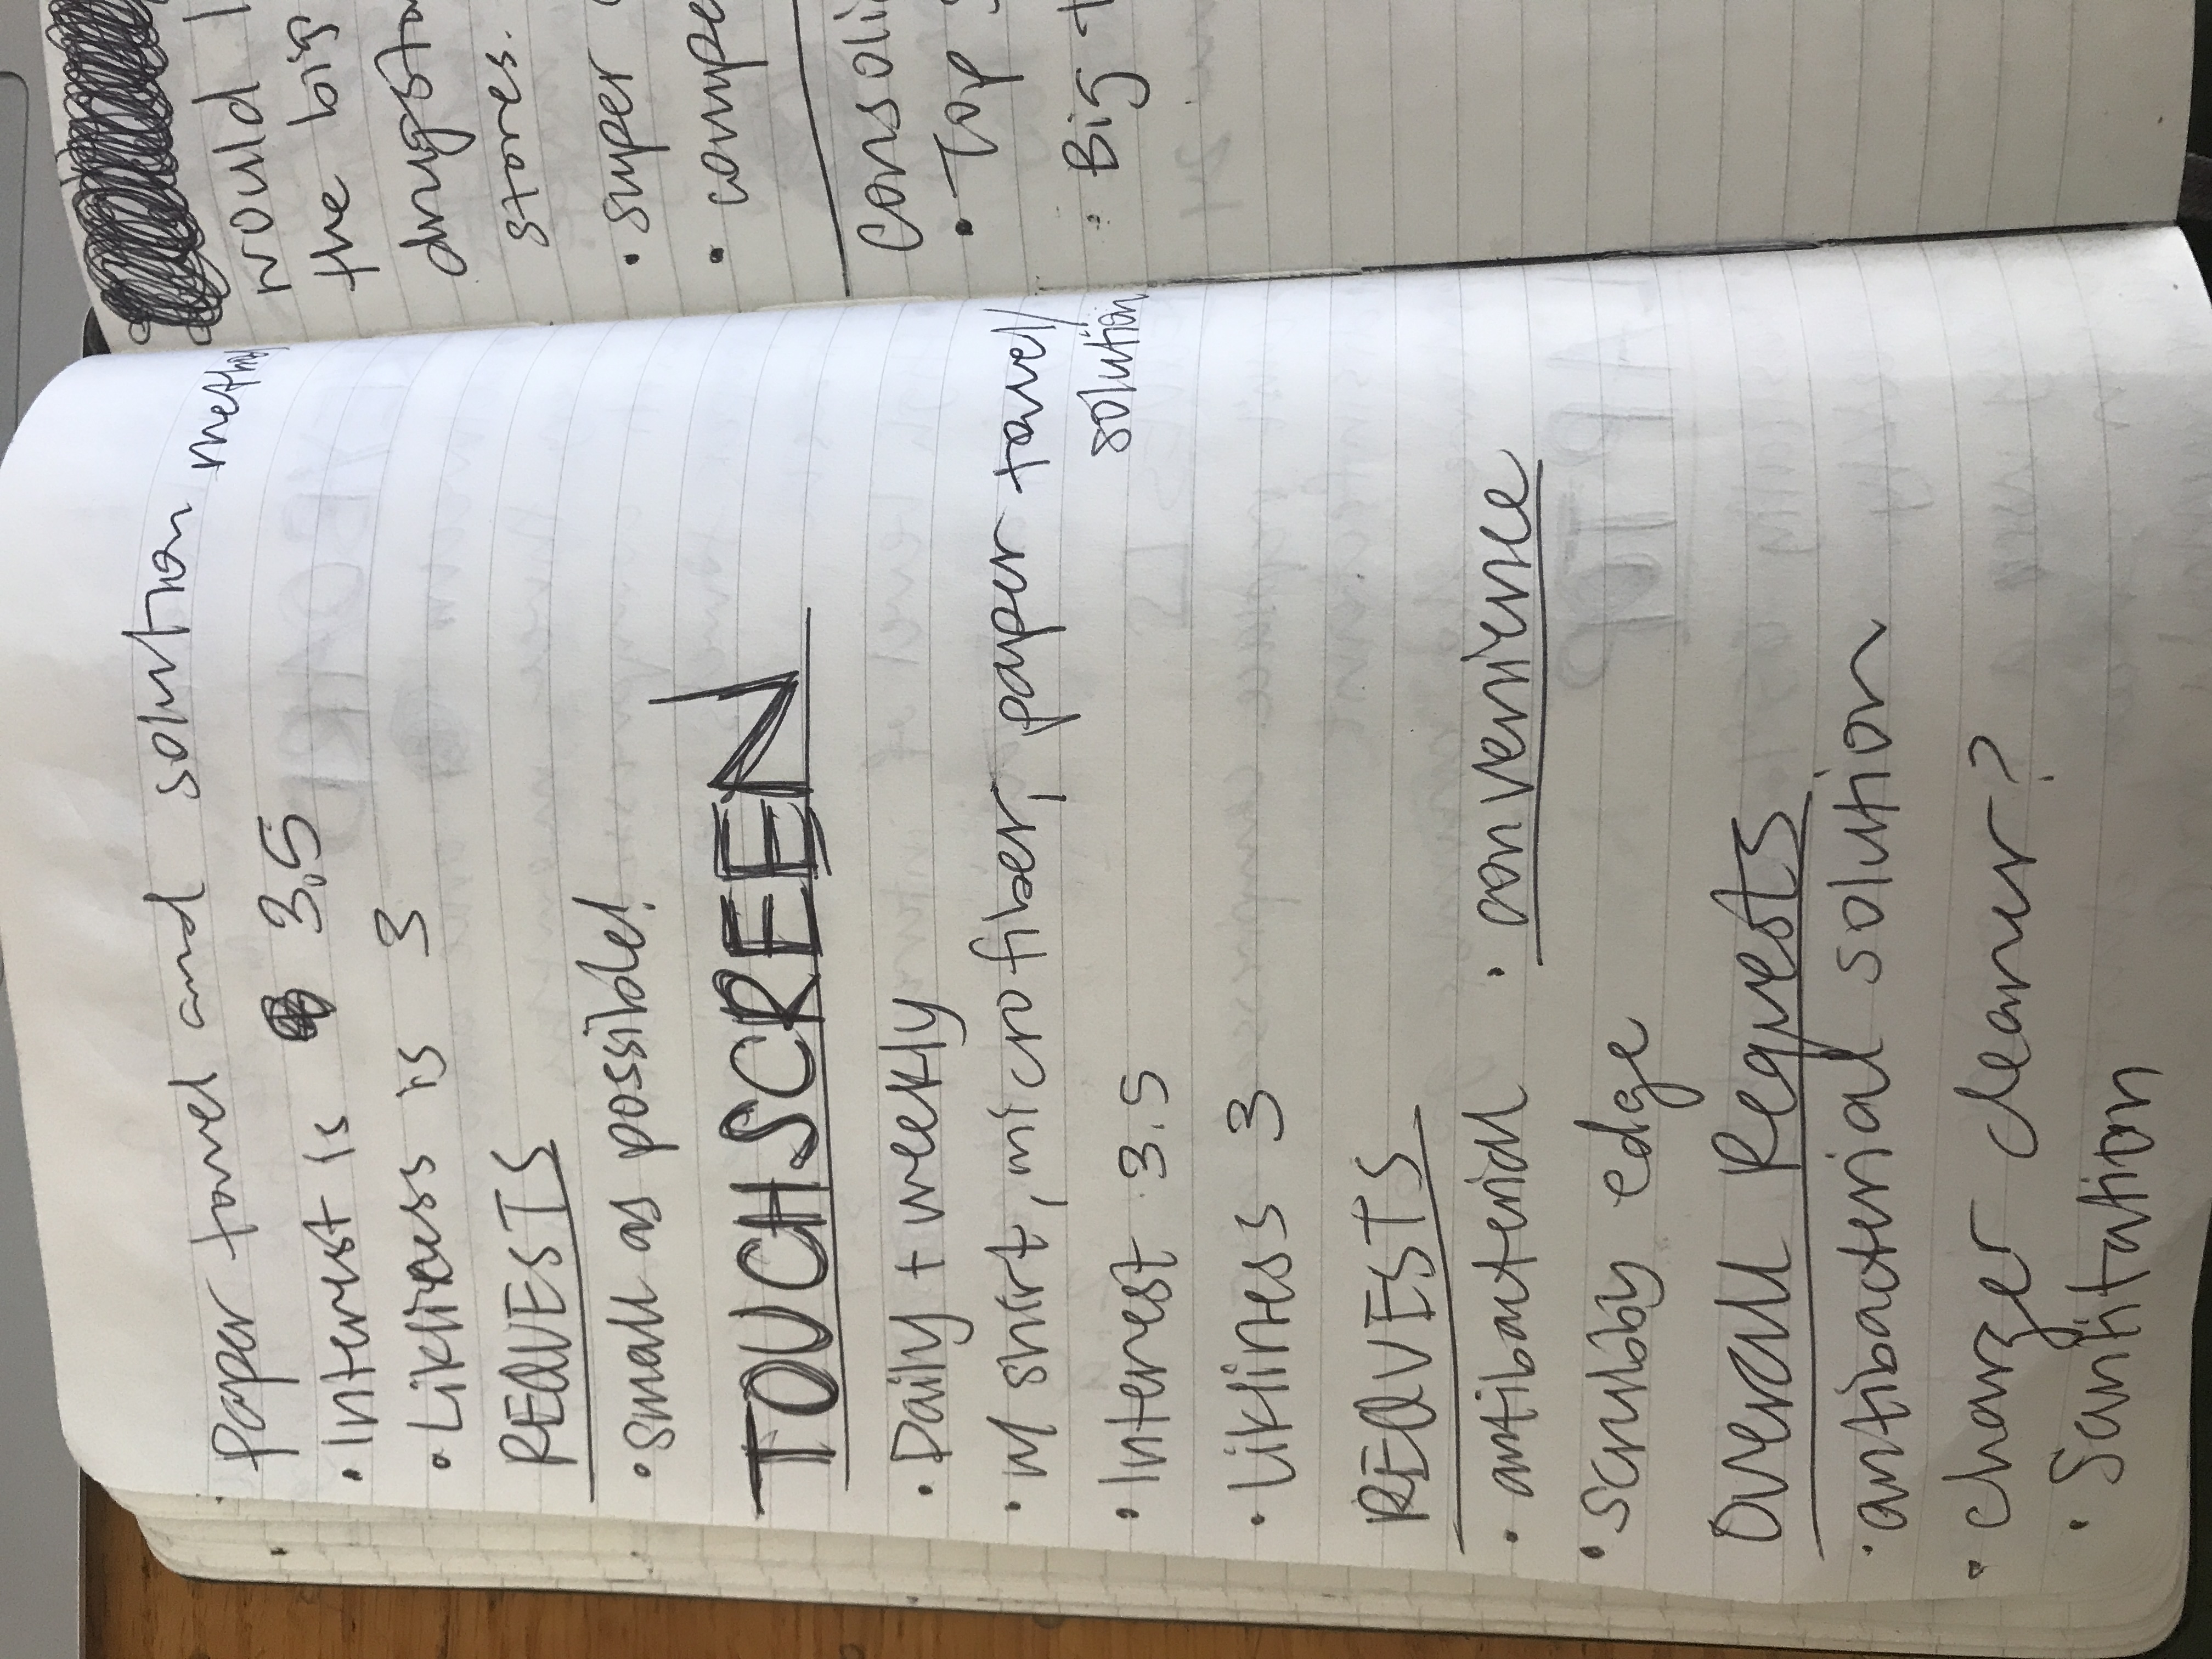 paper towel and solution method
• Interest is 3.5
• Likliness is 3
REQUESTS
• small as possible!
TOUCHSCREEN
• Daily + weekly
• w/ shirt, microfiber, paper towel/
solution
• Interest 3.5
• likliness 3
REQUESTS
• antibacterial • convenience
• scrubby edge
Overall Requests
• antibacterial solution
• charger cleaner?
• Santitation
would
the big
stores.
• super
• Top
• Big